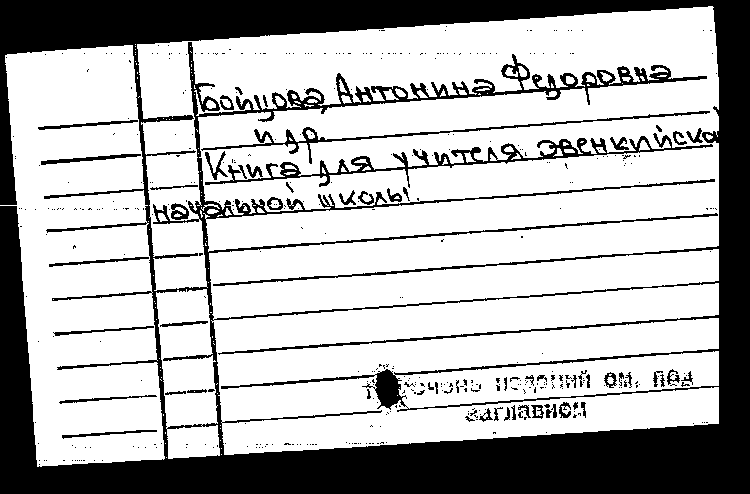 Бойцова, Антонина Федоровна
и др.
Книга для учителя эвенкийской
начальной школы.
изданий см. под
заглавием